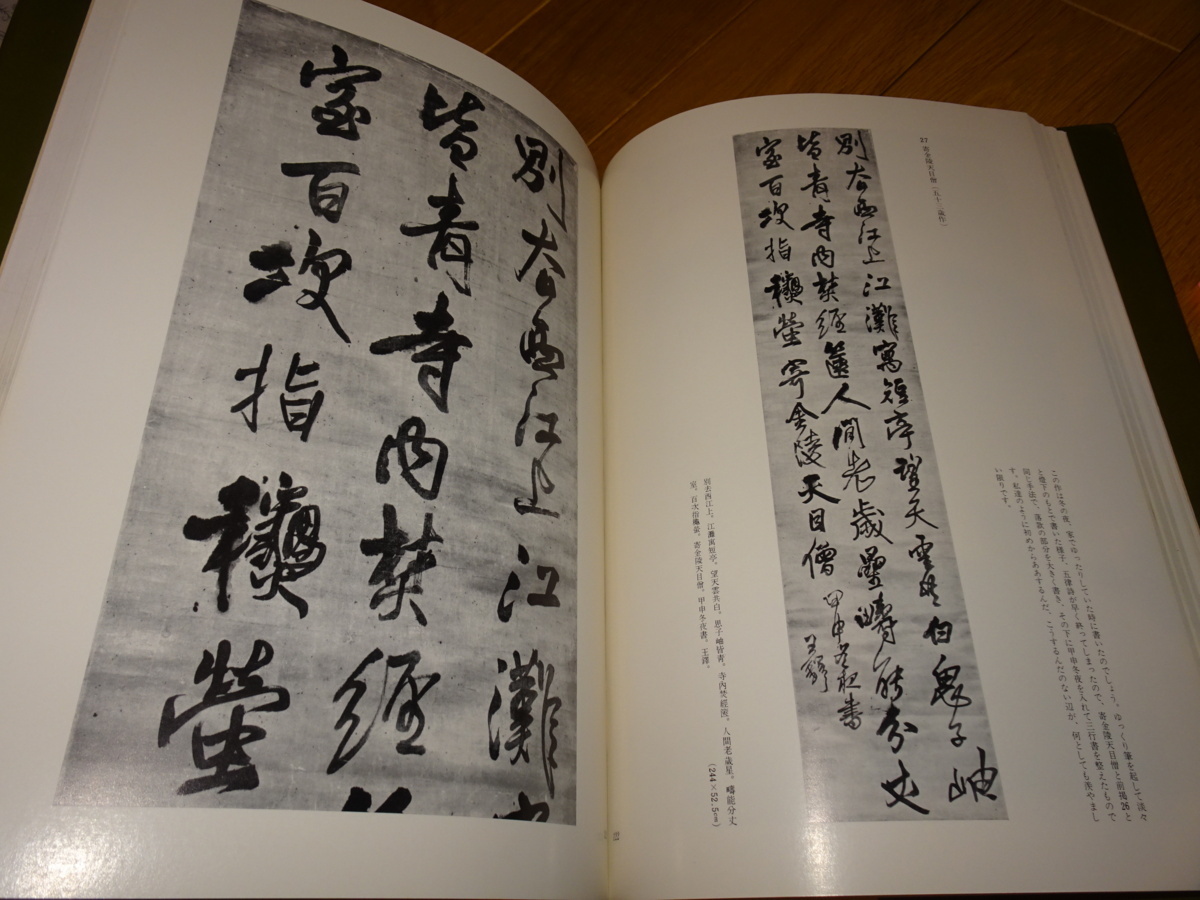 別去西江上江灘
皆青寺内焚經
室百次指穐螢
27 寄金陵天目僧(五十三歳作)
この作は冬の夜、家でゆったりしていた時に書いたのでしょう。ゆっくり筆を起して淡々
と燈下のもとで書いた様子。五律詩が早く終ってしまったので、寄金陵天目僧と前掲26と
同じ手法で、落款の部分を大きく書き、その下に甲申冬夜を入れて三行書を整えたもので
す。私達のように初めからああするんだ、こうするんだのない辺が、何としても羨やまし
い限りです。
別去西江上江灘寓短亭望天雲共白思子岫
皆青寺内焚經篋人間老歳星疇能分丈
室百次指穐螢寄金陵天目僧 甲申冬夜書
王鐸
別去西江上。江灘寓短亭。望天雲共白。思子岫皆青。寺内焚經篋。人間老歳星。疇能分丈
室。百次指穐螢。寄金陵天目僧。甲申冬夜書。王鐸。
(244×52.5cm)